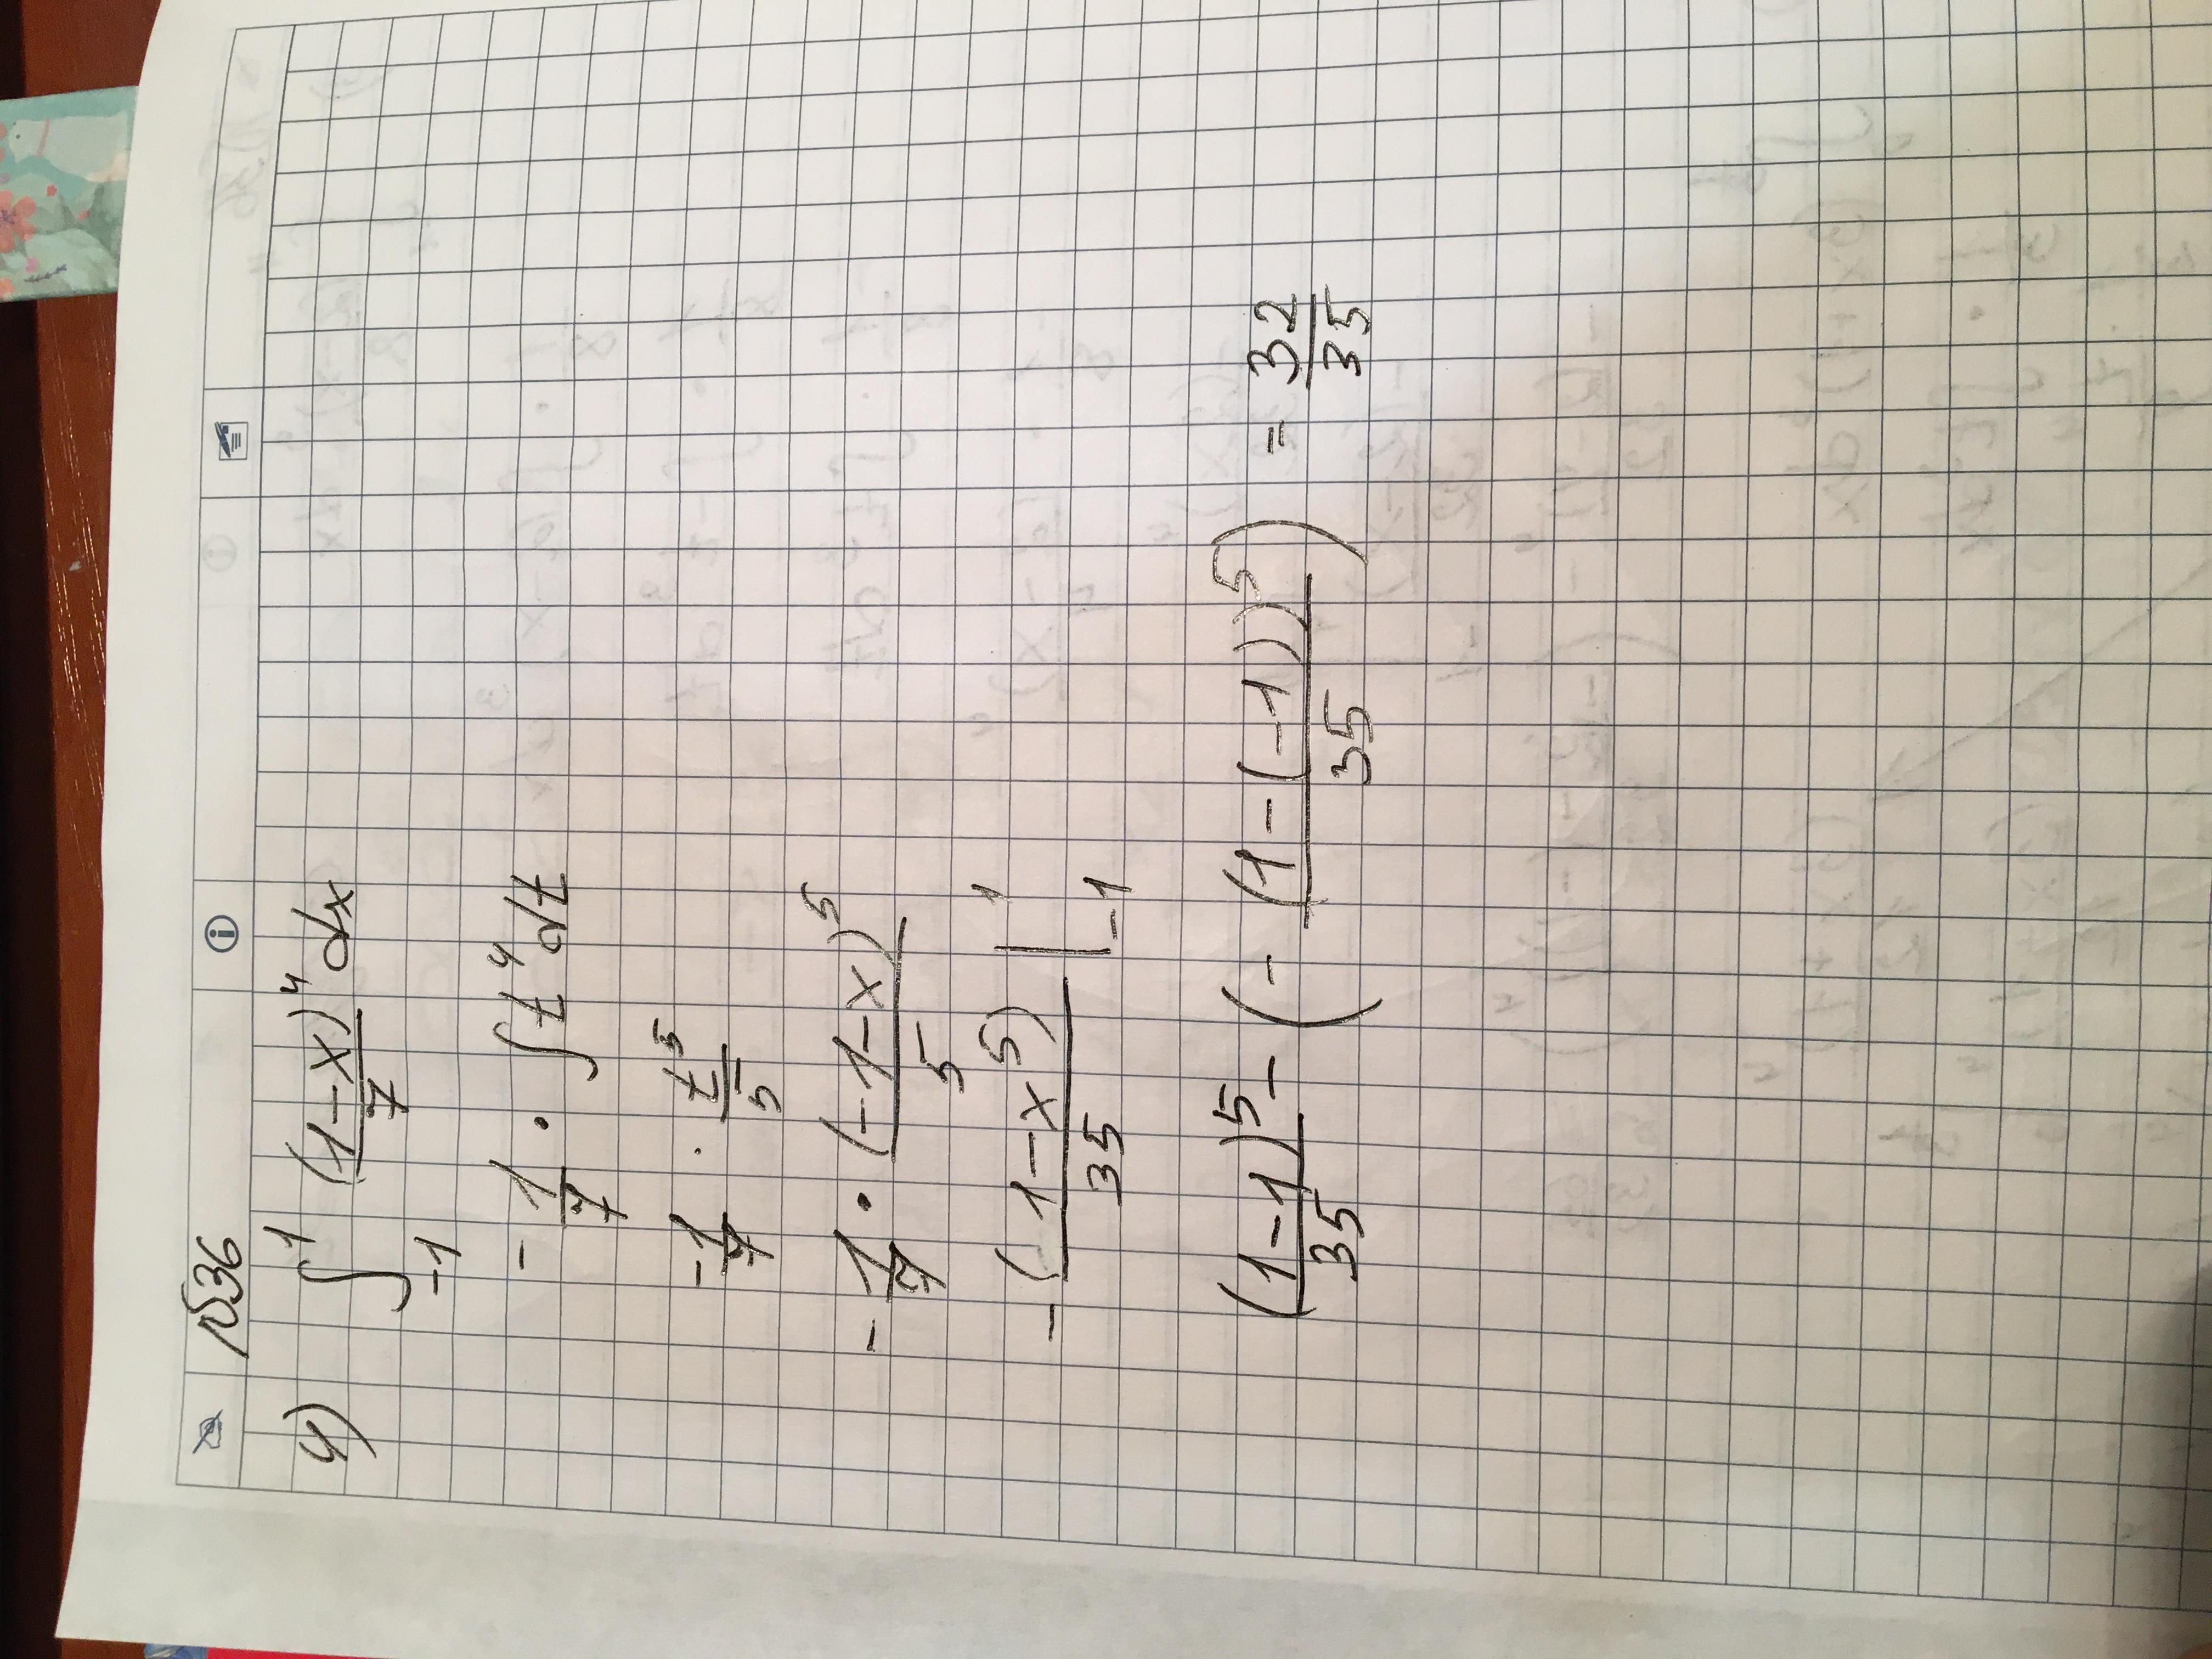 №36
4) ∫₋₁¹ (1-x)⁴/7 dx
-1/7 · ∫t⁴dt
-1/7 · t⁵/5
-1/7 · (-1-x)⁵/5
-(1-x⁵)/35 |₋₁¹
(1-1)⁵/35 - (- (1-(-1))⁵/35) = 32/35